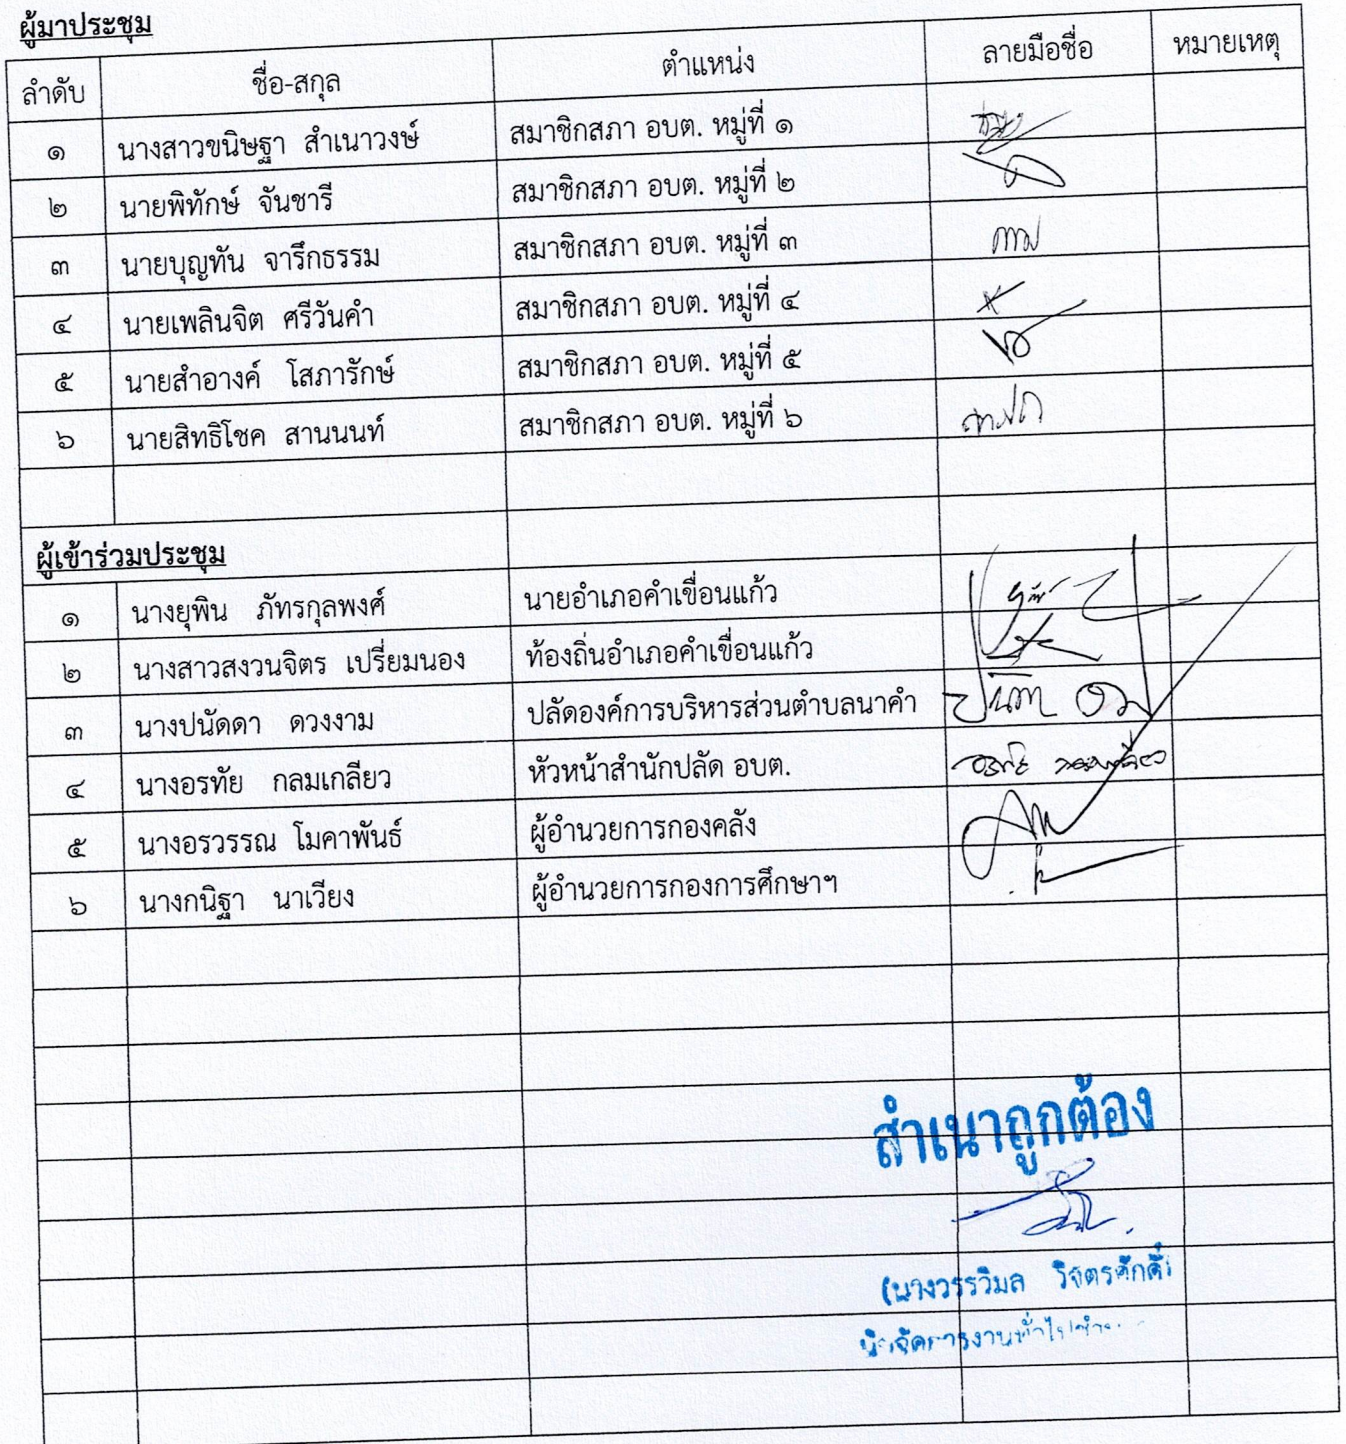 ผู้มาประชุม
ลำดับ ชื่อ-สกุล ตำแหน่ง ลายมือชื่อ หมายเหตุ
๑ นางสาวขนิษฐา สำเนาวงษ์ สมาชิกสภา อบต. หมู่ที่ ๑
๒ นายพิทักษ์ จันชารี สมาชิกสภา อบต. หมู่ที่ ๒
๓ นายบุญทัน จารึกธรรม สมาชิกสภา อบต. หมู่ที่ ๓
๔ นายเพลินจิต ศรีวันคำ สมาชิกสภา อบต. หมู่ที่ ๔
๕ นายสำอางค์ โสภารักษ์ สมาชิกสภา อบต. หมู่ที่ ๕
๖ นายสิทธิโชค สานนนท์ สมาชิกสภา อบต. หมู่ที่ ๖
ผู้เข้าร่วมประชุม
๑ นางยุพิน ภัทรกุลพงศ์ นายอำเภอคำเขื่อนแก้ว
๒ นางสาวสงวนจิตร เปรี่ยมนอง ท้องถิ่นอำเภอคำเขื่อนแก้ว
๓ นางปนัดดา ดวงงาม ปลัดองค์การบริหารส่วนตำบลนาคำ
๔ นางอรทัย กลมเกลียว หัวหน้าสำนักปลัด อบต. อรทัย กลมเกลียว
๕ นางอรวรรณ โมคาพันธ์ ผู้อำนวยการกองคลัง
๖ นางกนิฐา นาเวียง ผู้อำนวยการกองการศึกษาฯ
สำเนาถูกต้อง
(นางวรรวิมล วิจตรศักดิ์